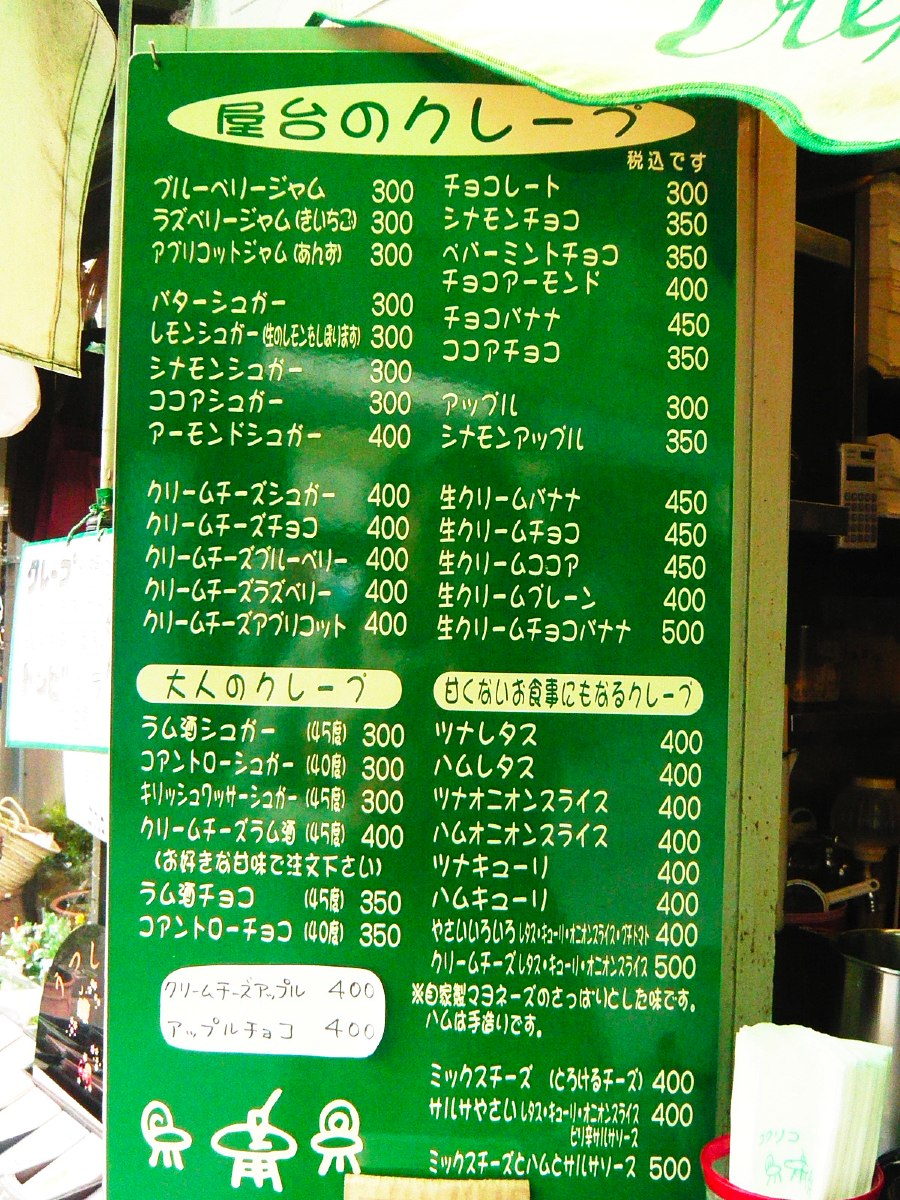 屋台のクレープ
税込です
ブルーベリージャム 300
ラズベリージャム(きいちご) 300
アプリコットジャム(あんず) 300
バターシュガー 300
レモンシュガー(生のレモンをしぼります) 300
シナモンシュガー 300
ココアシュガー 300
アーモンドシュガー 400
クリームチーズシュガー 400
クリームチーズチョコ 400
クリームチーズブルーベリー 400
クリームチーズラズベリー 400
クリームチーズアプリコット 400
チョコレート 300
シナモンチョコ 350
ペパーミントチョコ 350
チョコアーモンド 400
チョコバナナ 450
ココアチョコ 350
アップル 300
シナモンアップル 350
生クリームバナナ 450
生クリームチョコ 450
生クリームココア 450
生クリームプレーン 400
生クリームチョコバナナ 500
大人のクレープ
ラム酒シュガー (45度) 300
コアントローシュガー (40度) 300
キリッシュワッサーシュガー (45度) 300
クリームチーズラム酒 (45度) 400
(お好きな甘味で注文下さい)
ラム酒チョコ (45度) 350
コアントローチョコ (40度) 350
クリームチーズアップル 400
アップルチョコ 400
甘くないお食事にもなるクレープ
ツナレタス 400
ハムレタス 400
ツナオニオンスライス 400
ハムオニオンスライス 400
ツナキューリ 400
ハムキューリ 400
やさいいろいろ レタス・キューリ・オニオンスライス・プチトマト 400
クリームチーズ レタス・キューリ・オニオンスライス 500
※自家製マヨネーズのさっぱりとした味です。
ハムは手造りです。
ミックスチーズ (とろけるチーズ) 400
サルサやさい レタス・キューリ・オニオンスライス 400
ピリ辛サルサソース
ミックスチーズとハムとサルサソース 500